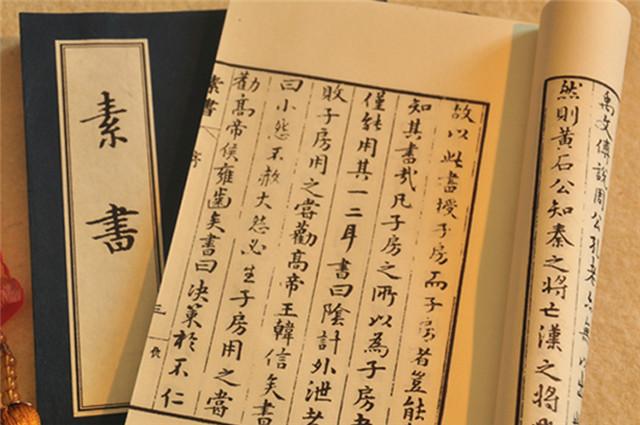 禹文傅說周公孔老亦無以出此
然則黃石公知秦之將亡漢之將
故以此書授子房而子房者豈能
知其書哉凡子房之所以為子房
僅能用其一二耳書曰陰計外泄者
敗子房用之嘗勸高帝王韓信矣書
曰小怨不赦大怨必生子房用之嘗
勸高帝侯雍齒矣書曰決策於不仁
素書 序 三
素書